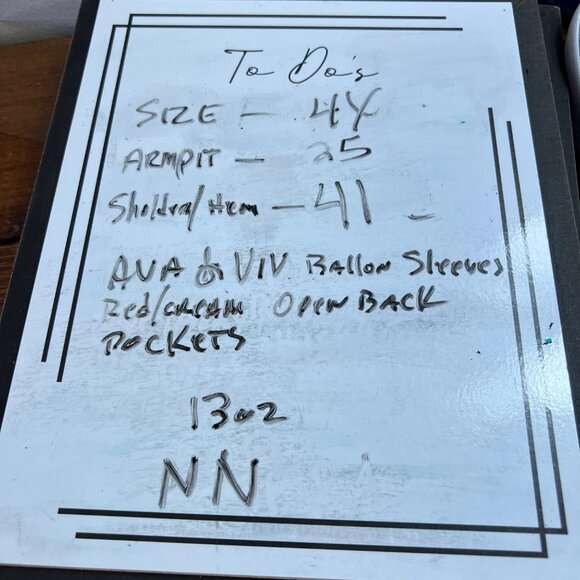 To Do's
SIZE — 4X
ARMPIT — 25
Sholdra/Hem — 41
AVA & VIV Ballon Sleeves
Red/CREAM OPEN BACK
POCKETS
13oz
NN